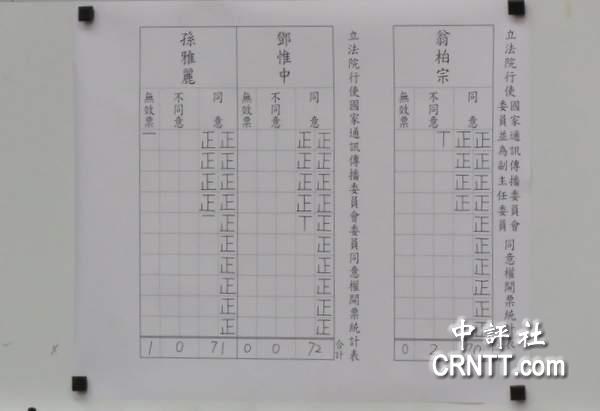 立法院行使國家通訊傳播委員會
委員並為副主任委員
同意權開票統計表
翁柏宗
同意
正正正正正正正正正正
正正正正
70
不同意
丅
2
無效票
0
立法院行使國家通訊傳播委員會委員同意權開票統計表
合計
鄧惟中
同意
正正正正正正正正正正
正正正正丅
72
不同意
0
無效票
0
孫雅麗
同意
正正正正正正正正正正
正正正正一
71
不同意
0
無效票
一
1
中評社
CRNTT.com